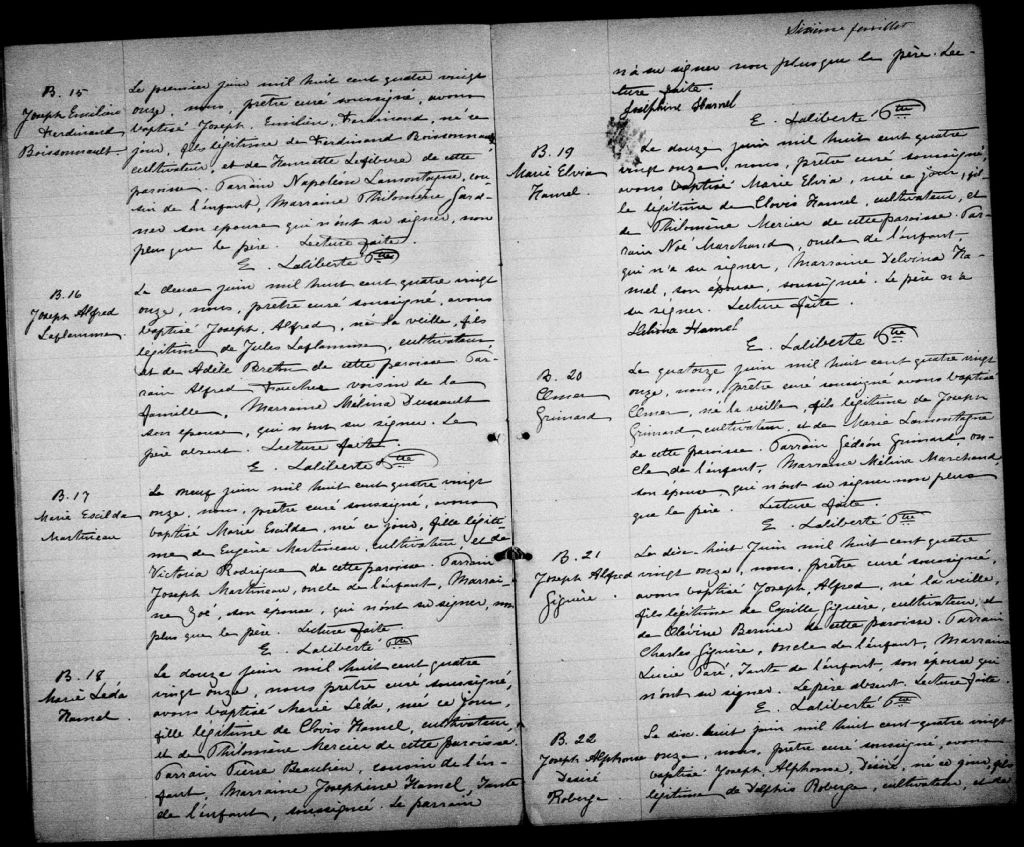 B. 15
Joseph Emilien
Ferdinand
Boissonnault.
Le premier juin mil huit cent quatre vingt
onze, nous, prêtre curé soussigné, avons
baptisé Joseph, Emilien, Ferdinand, né ce
jour, fils légitime de Ferdinand Boissonnault
cultivateur, et de Henriette Lefebvre de cette
paroisse. Parrain Napoléon Lamontagne, cou-
sin de l'enfant, Marraine Philomène Gard-
ner son épouse qui n'ont su signer, non
plus que le père. Lecture faite.
E. Laliberté Ptre
B. 16
Joseph Alfred
Laflamme
Le deux juin mil huit cent quatre vingt
onze, nous, prêtre curé soussigné, avons
baptisé Joseph, Alfred, né la veille, fils
légitime de Jules Laflamme, cultivateur
et de Adèle Breton de cette paroisse. Par-
rain Alfred Foucher voisin de la
famille, Marraine Mélina Dussault
son épouse, qui n'ont su signer. Le
père absent. Lecture faite.
E. Laliberté Ptre
B. 17
Marie Escilda
Martineau
Le neuf juin mil huit cent quatre vingt
onze, nous, prêtre curé soussigné, avons
baptisé Marie Escilda, née ce jour, fille légiti-
me de Eugène Martineau, cultivateur, et de
Victoria Rodrigue de cette paroisse. Parrain
Joseph Martineau, oncle de l'enfant, Marrai-
ne Zoé, son épouse, qui n'ont su signer, non
plus que le père. Lecture faite.
E. Laliberté Ptre
B. 18
Marie Léda
Hamel
Le douze juin mil huit cent quatre
vingt onze, nous prêtre curé soussigné,
avons baptisé Marie Léda, née ce jour,
fille légitime de Clovis Hamel, cultivateur,
et de Philomène Mercier de cette paroisse.
Parrain Pierre Beaulieu, cousin de l'en-
fant, Marraine Josephine Hamel, Tante
de l'enfant, soussignée. Le parrain
Sixième feuillet
n'a su signer non plus que le père. Lec-
ture faite.
Joséphine Hamel
E. Laliberté Ptre
B. 19
Marie Elvia
Hamel
Le douze juin mil huit cent quatre
vingt onze, nous, prêtre curé soussigné,
avons baptisé Marie Elvia, née ce jour, fil-
le légitime de Clovis Hamel, cultivateur, et
de Philomène Mercier de cette paroisse. Par-
rain Noé Marchand, oncle de l'enfant,
qui n'a su signer, Marraine Delvina Ha-
mel, son épouse, soussignée. Le père n'a
su signer. Lecture faite.
Hamel
E. Laliberté Ptre
B. 20
Elmer
Grimard
Le quatorze juin mil huit cent quatre vingt
onze, nous, prêtre curé soussigné avons baptisé
Elmer, né la veille, fils légitime de Joseph
Grimard, cultivateur, et de Marie Lamontagne
de cette paroisse. Parrain Gédéon Grimard, on-
cle de l'enfant, Marraine Mélina Marchand,
son épouse qui n'ont su signer non plus
que le père. Lecture faite.
E. Laliberté Ptre
B. 21
Joseph Alfred
Giguère
Le dix-huit Juin mil huit cent quatre
vingt onze, nous, prêtre curé soussigné,
avons baptisé Joseph, Alfred, né la veille,
fils légitime de Cyrille Giguère, cultivateur, et
de Clévine Bernier de cette paroisse. Parrain
Charles Giguère, oncle de l'enfant, Marraine
Lucie Paré, Tante de l'enfant, son épouse qui
n'ont su signer. Le père absent. Lecture faite.
E. Laliberté Ptre
B. 22
Joseph Alphonse
Désiré
Roberge
Le dix-huit juin mil huit cent quatre vingt
onze, nous, prêtre curé soussigné, avons
baptisé Joseph, Alphonse, Désiré, né ce jour, fils
légitime de Delphis Roberge, cultivateur, et de